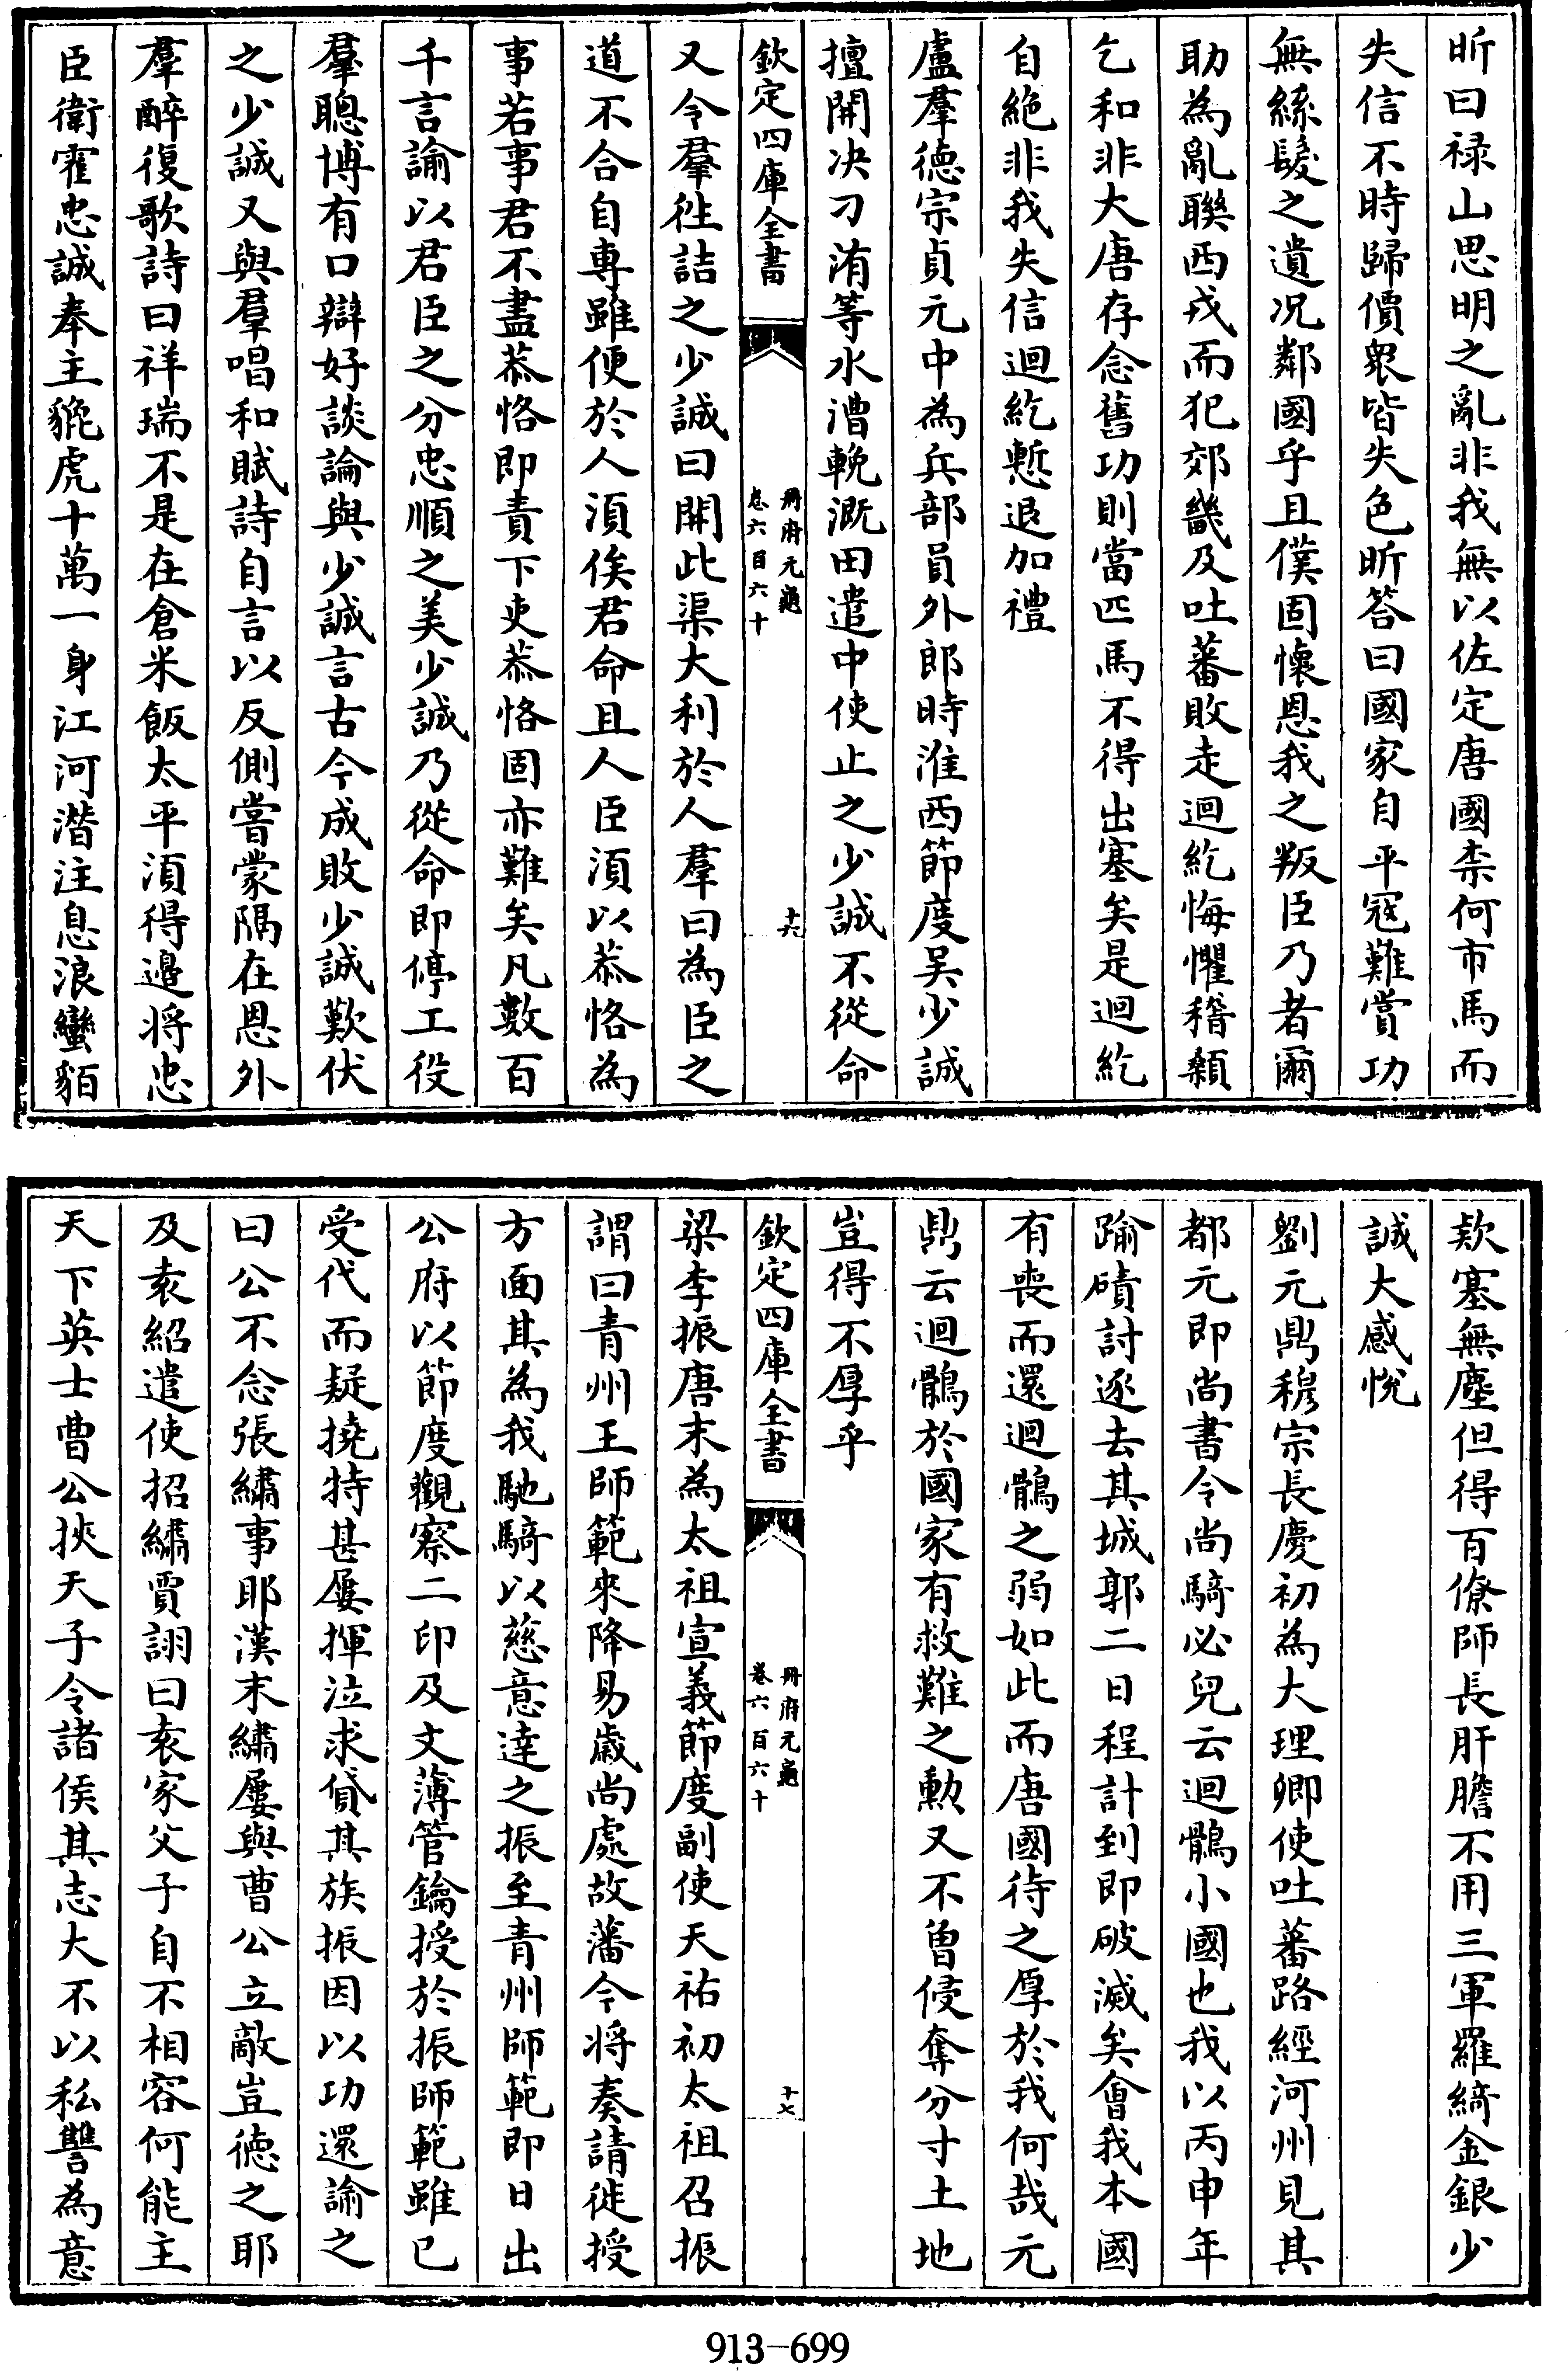 昕曰禄山思明之亂非我無以佐定唐國柰何市馬而
失信不時歸價衆皆失色昕答曰國家自平冦難賞功
無絲髮之遺况鄰國乎且僕固懷恩我之叛臣乃者爾
助為亂聯西戎而犯郊畿及吐蕃敗走迴紇悔懼稽顙
乞和非大唐存念舊功則當匹馬不得出塞矣是迴紇
自絶非我失信迴紇慙退加禮
盧羣徳宗貞元中為兵部員外郎時淮西節度吳少誠
擅開决刁洧等水漕輓溉田遣中使止之少誠不從命
欽定四庫全書
冊府元龜
卷六百六十
十六
又令羣徃詰之少誠曰開此渠大利於人羣曰為臣之
道不合自專雖便於人湏俟君命且人臣湏以恭恪為
事若事君不盡恭恪即責下吏恭恪固亦難矣凡數百
千言諭以君臣之分忠順之美少誠乃從命即停工役
羣聰博有口辯好談論與少誠言古今成敗少誠歎伏
之少誠又與羣唱和賦詩自言以反側嘗蒙隔在恩外
羣醉復歌詩曰祥瑞不是在倉米飯太平湏得邊将忠
臣衛霍忠誠奉主貔虎十萬一身江河潛注息浪蠻貊
欵塞無塵但得百僚師長肝膽不用三軍羅綺金銀少
誠大感悅
劉元鼎穆宗長慶初為大理卿使吐蕃路經河州見其
都元即尚書令尚騎必兒云迴鶻小國也我以丙申年
踰磧討逐去其城郭二日程計到即破滅矣會我本國
有喪而還迴鶻之弱如此而唐國待之厚於我何哉元
鼎云迴鶻於國家有救難之勲又不曽侵奪分寸土地
豈得不厚乎
欽定四庫全書
冊府元龜
卷六百六十
十七
梁李振唐末為太祖宣義節度副使天祐初太祖召振
謂曰青州王師範來降易歲尚處故藩今将奏請徙授
方面其為我馳騎以慈意達之振至青州師範即日出
公府以節度觀察二印及文薄管鑰授於振師範雖已
受代而疑撓特甚屢揮泣求貸其族振因以功還諭之
曰公不念張繡事耶漢末繡屢與曹公立敵豈徳之耶
及袁紹遣使招繡賈詡曰袁家父子自不相容何能主
天下英士曹公挾天子令諸侯其志大不以私讐為意
913-699